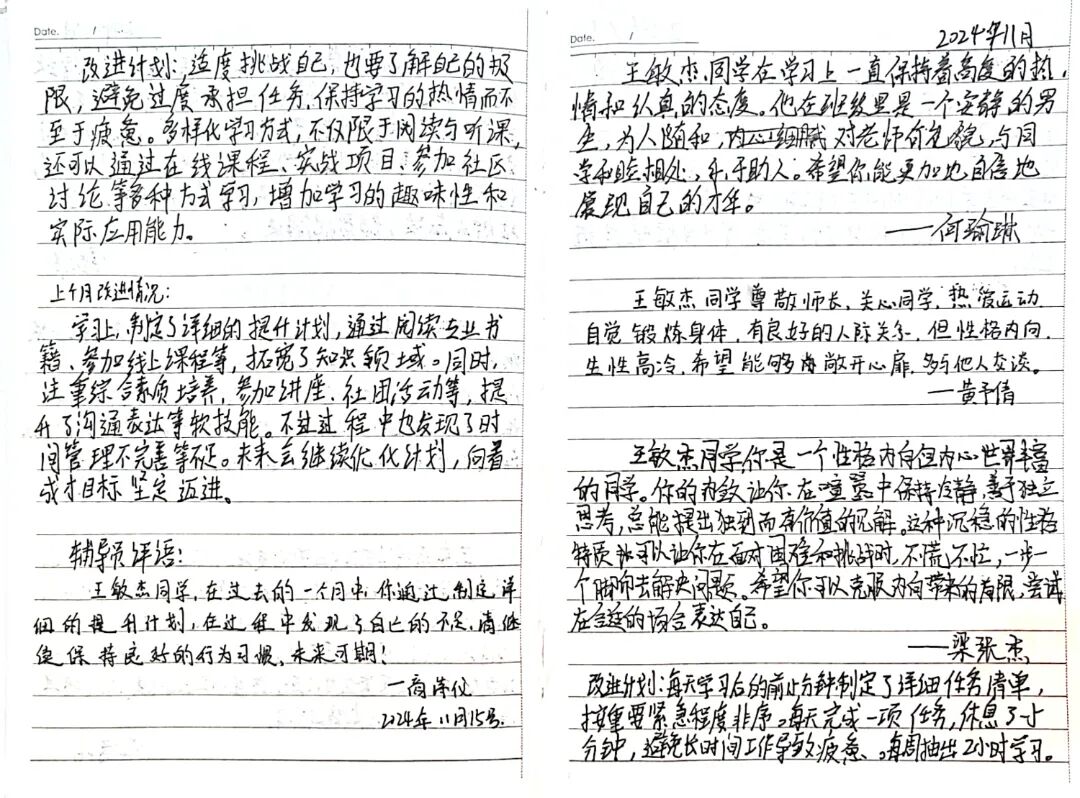 Date. /
改进计划:适度挑战自己,也要了解自己的极
限,避免过度承担任务,保持学习的热情而不
至于疲惫。多样化学习方式,不仅限于阅读与听课,
还可以通过在线课程、实战项目、参加社区
讨论等多种方式学习,增加学习的趣味性和
实际应用能力。
上个月改进情况:
学习上,制定了详细的提升计划,通过阅读专业书
籍、参加线上课程等,拓宽了知识领域。同时,
注重综合素质培养,参加讲座、社团活动等,提
升了沟通表达等软技能。不过过程中也发现了时
间管理不完善等不足。未来会继续优化计划,向着
成才目标坚定迈进。
辅导员评语:
王敏杰同学,在过去的一个月中,你通过制定详
细的提升计划,在过程中发现了自己的不足,请继
续保持良好的行为习惯,未来可期!
2024年11月15号.
Date. /
2024年11月
王敏杰同学在学习上一直保持着高度的热
情和认真的态度。他在班级里是一个安静的男
生,为人随和,内心细腻,对老师有礼貌,与同
学和睦相处,乐于助人。希望你能更加地自信地
展现自己的才华。
——何瑜琳
王敏杰同学尊敬师长、关心同学,热爱运动
自觉锻炼身体,有良好的人际关系,但性格内向,
生性高冷,希望能够敞开心扉,多与他人交谈。
——黄予倩
王敏杰同学,你是一个性格内向但内心世界丰富
的同学。你的内敛让你在喧嚣中保持冷静,善于独立
思考,总能提出独到而有价值的见解。这种沉稳的性格
特质可以让你在面对困难和挑战时,不慌不忙,一步一
个脚印去解决问题。希望你可以克服内向带来的局限,尝试
在合适的场合表达自己。
——梁张杰
改进计划:每天学习后的前10分钟制定了详细任务清单,
按重要紧急程度排序。每天完成一项任务,休息了5
分钟,避免长时间工作导致疲惫。每周抽出2小时学习。